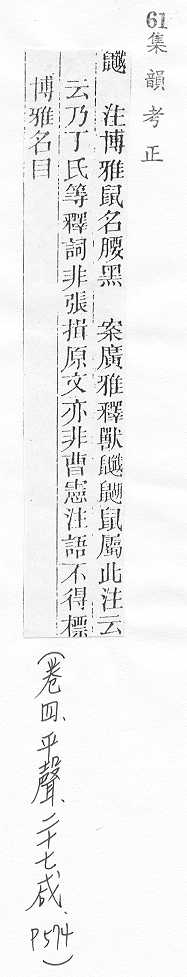 61集韻考正
䶫 注博雅鼠名腰黑 案廣雅釋獸䶫䶅鼠屬此注云
云乃丁氏等釋詞非張揖原文亦非曹憲注語不得標
博雅名目
(卷四、平聲、二十七、咸、P574)